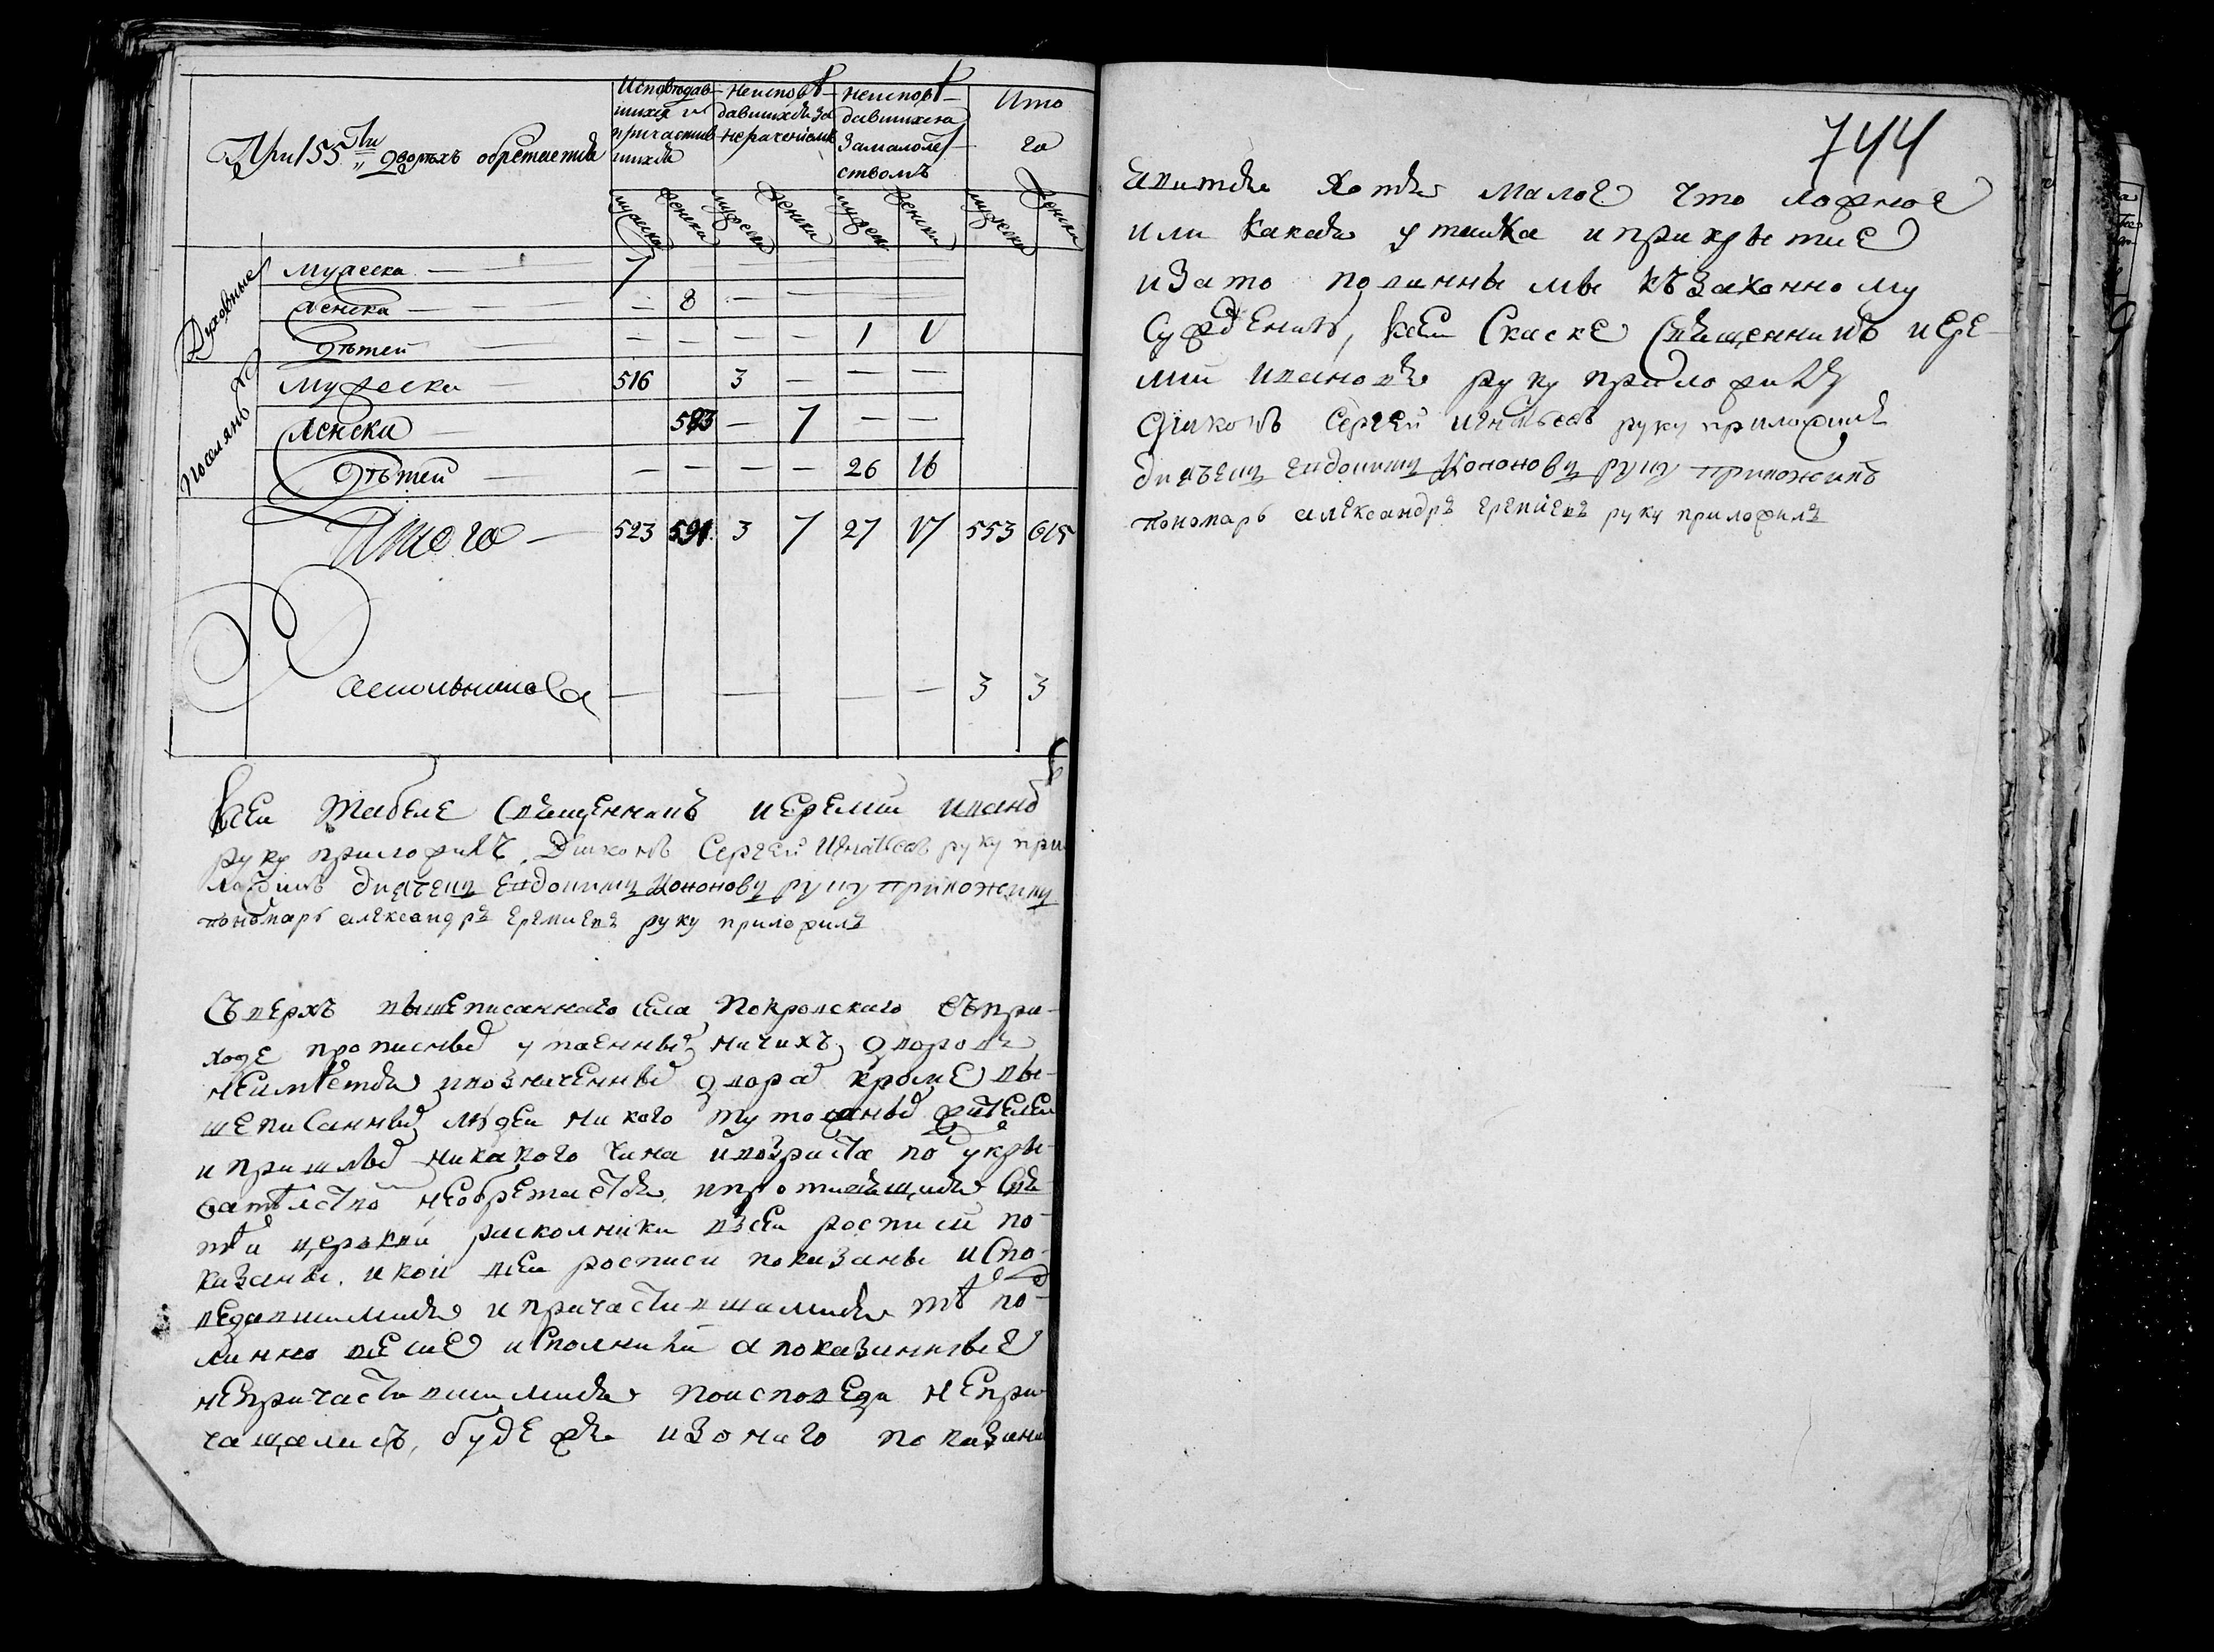 При 155ти дворѣхъ обретается
Исповѣдав-
шихся и
причастив
шихся
Неисповѣ-
давшихся за
нерачениемъ
неисповѣ-
давшихся
за малолет-
ствомъ
Ито
го
мужеска женски мужески женски мужеск женски мужеска женски
Духовные
мужеска 7
женска — 8 — — — —
дѣтей — — — — 1 1
Поселянъ
мужески 516 3 — — —
женски 583 — 7 — —
дѣтей — — — — 26 16
Итого 523 591 3 7 27 17 553 615
Раскольниковъ — — — — 3 3
Ксей табеле священникъ иеремии иванов
руку приложилъ, Дияконъ Сергеи Игнатьевъ руку при
ложилъ дьячецъ Евдокимъ Кононовъ руку приложилъ
пономарь александръ еремиевъ руку приложилъ
Съверхъ вышеписанного села Покровскаго въпри-
ходе прописныхъ утаенныхъ ничихъ дворовъ
неимѣется ивозначенныхъ дворахъ кроме вы-
шеписанныхъ людеи никого тутошныхъ жителеи
и пришлыхъ никакого чина ивозраста по укры-
вателство необретается, ипротивящияся свя-
тѣи церькви расколники всеи росписи по-
казаны. и кои всеи росписи показаны испо-
ведавшимися и причастившимися тѣ по-
линно исполнили а показанные
непричастившимися поисповеди непри-
чащались, буде же изоного показани
744
явится хотя малое что ложное
или какая утаика и прикрытие
изато повинны мы къзаконному
суждению, ксеи скаске священникъ иере-
мии ивановъ руку приложилъ
дияконъ Сергеи игнатьевъ руку приложилъ
дьячецъ евдокимъ Кононовъ руку приложилъ
пономарь александръ еремиевъ руку приложилъ